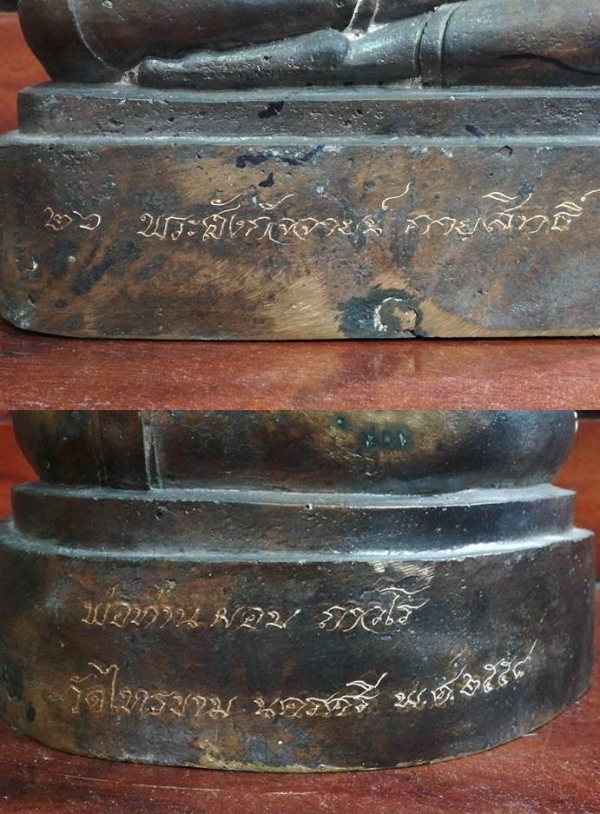 ๒๖ พระสังกัจจายน์ กายสิทธิ์
พ่อท่านมอบ ภทวโร
วัดไทรขาม นครศรี พ.ศ.๒๕๕๘